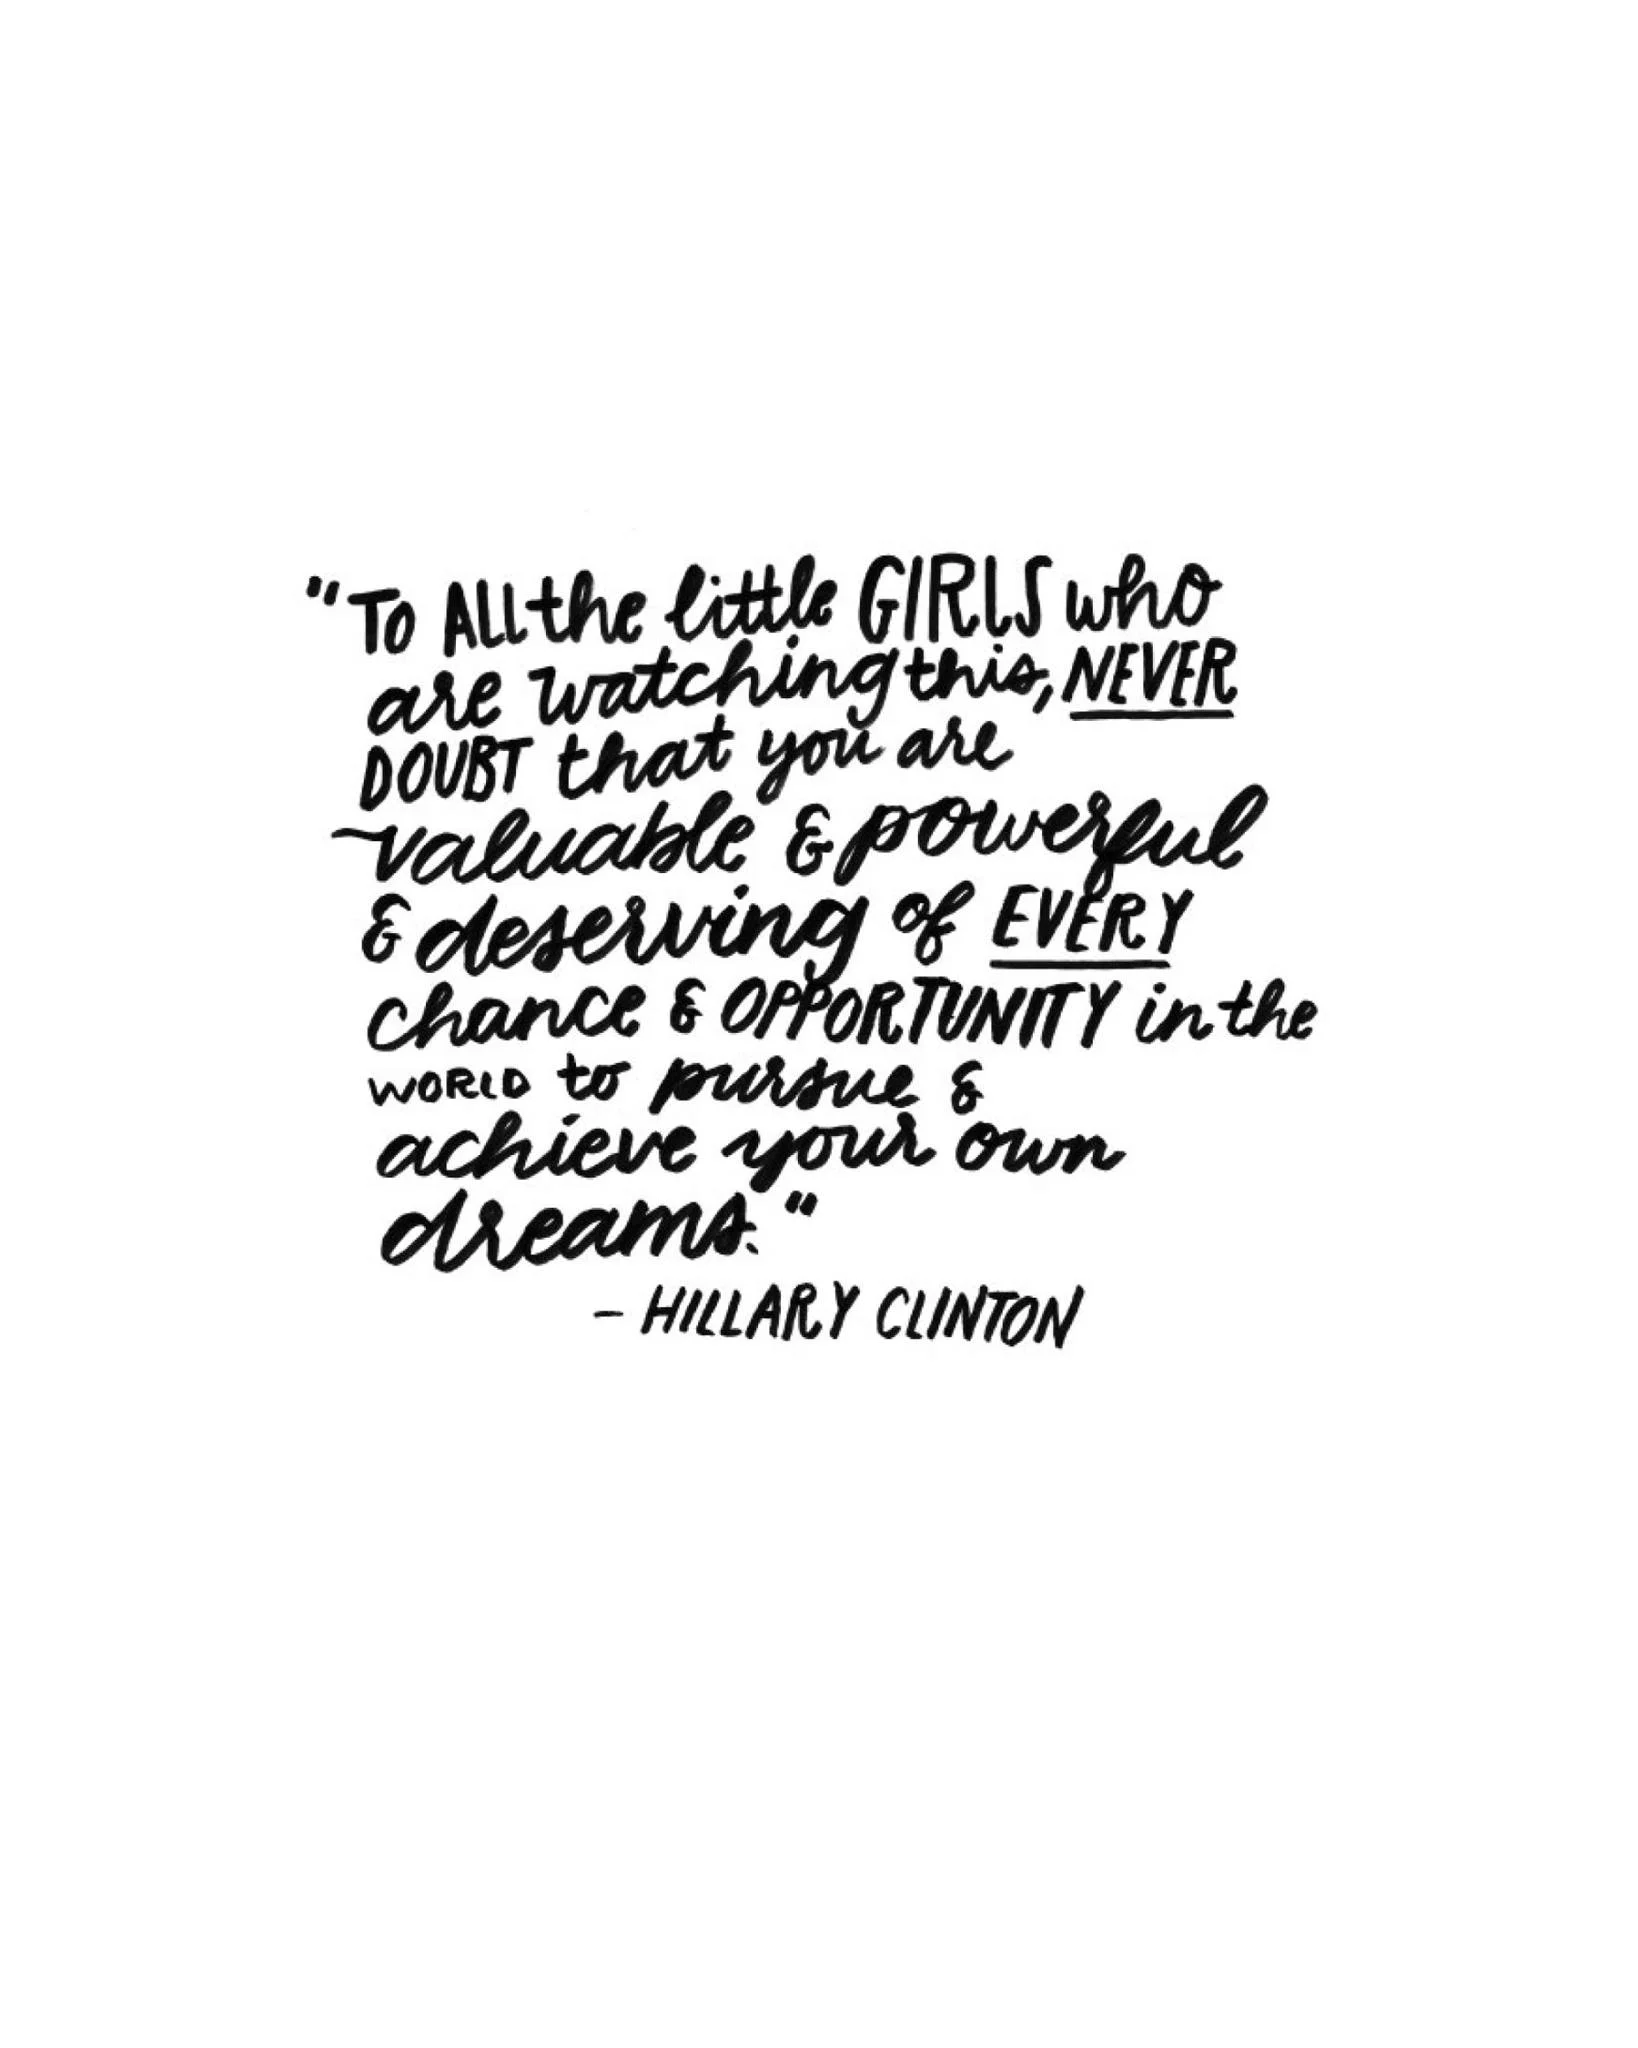 "TO ALL the little GIRLS who
are watching this, NEVER
DOUBT that you are
valuable & powerful
& deserving of EVERY
chance & OPPORTUNITY in the
WORLD to pursue &
achieve your own
dreams."
- HILLARY CLINTON